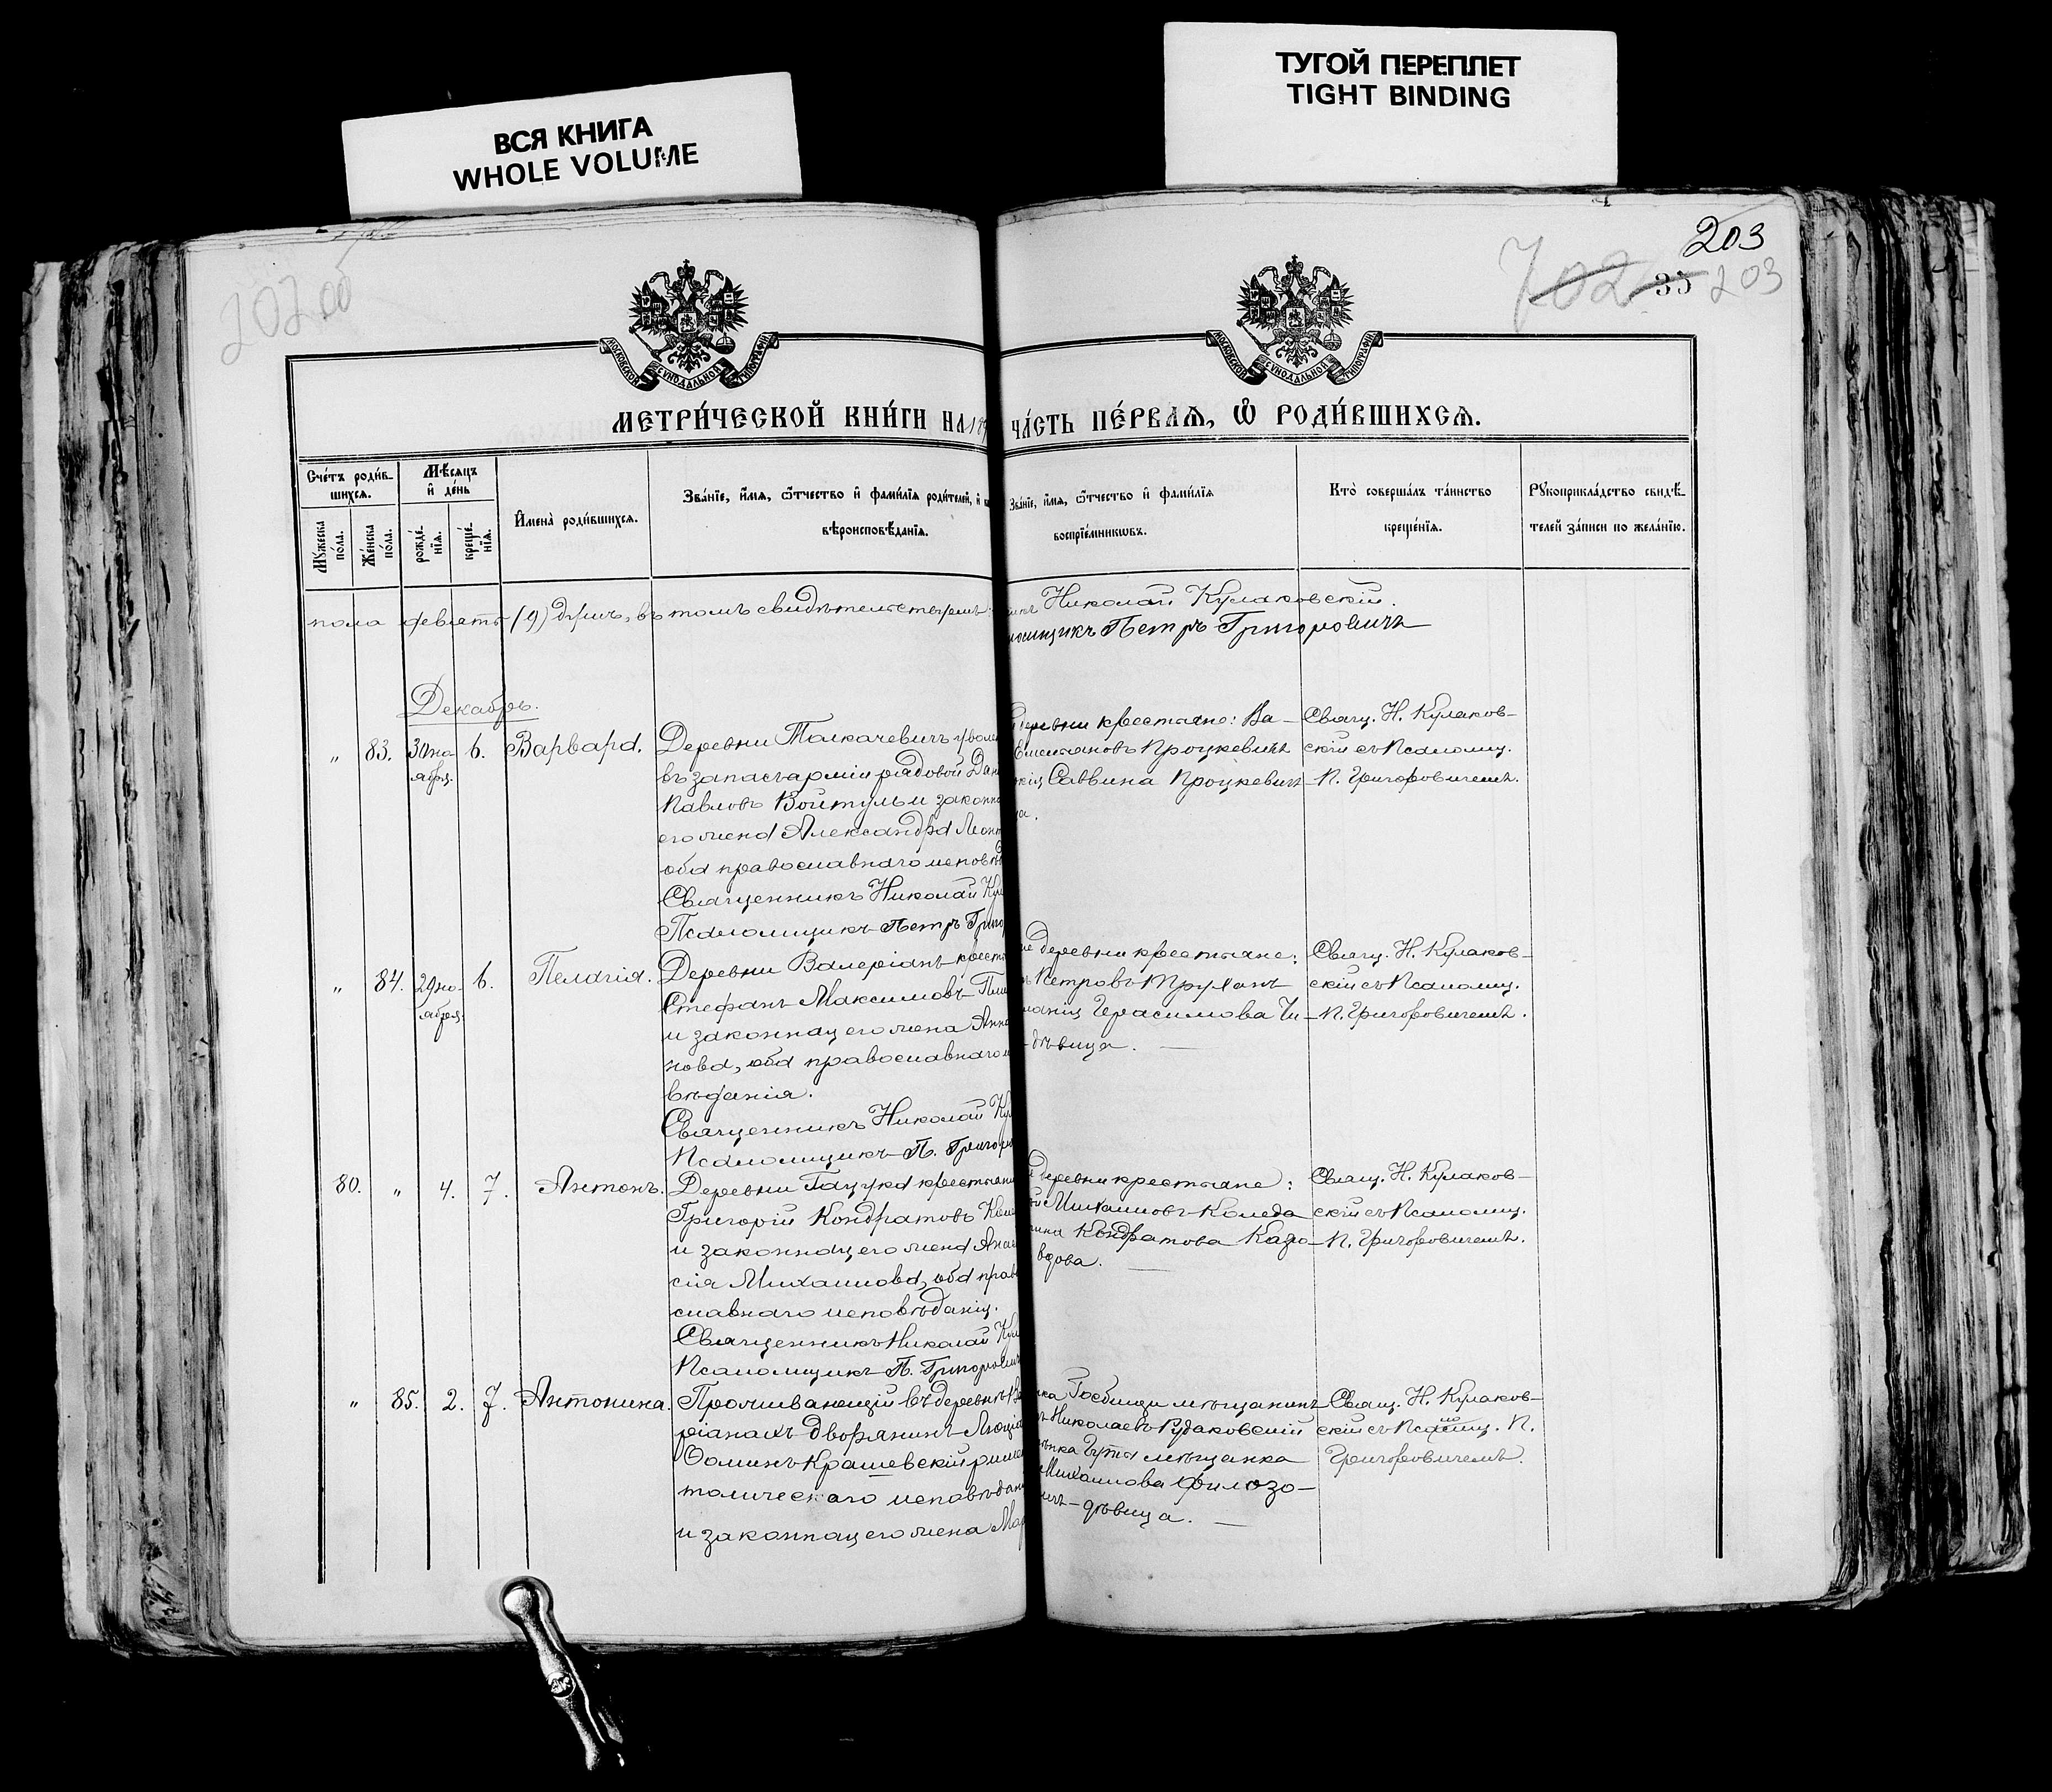 ВСЯ КНИГА
WHOLE VOLUME
ТУГОЙ ПЕРЕПЛЕТ
TIGHT BINDING
202 об
203
702 35 203
МОСКОВСКОЙ СУНОДАЛЬНОЙ ТИПОГРАФІИ
МОСКОВСКОЙ СУНОДАЛЬНОЙ ТИПОГРАФІИ
МЕТРИ́ЧЕСКОЙ КНИ́ГИ НА
ЧА́СТЬ ПЕ́РВАѦ, Ѡ҆ РОДИ́ВШИХСѦ.
Сче́тъ роди́в-
шихсѧ.
Мѣ́сѧцъ
и҆ де́нь
Мꙋ́жеска
по́ла.
Же́нска
по́ла.
рожде́-
нїѧ.
креще́-
нїѧ.
И҆мена̀ роди́вшихсѧ.
Зва́нїе, и҆́мѧ, ѻ҆́тчество и҆ фами́лїѧ роди́телей, и҆
вѣроисповѣ́данїѧ.
Зва́нїе, и҆́мѧ, ѻ҆́тчество и҆ фами́лїѧ
воспрїе́мникѡвъ.
Кто̀ соверша́лъ та́инство
креще́нїѧ.
Рꙋкоприкла́дство свидѣ́-
телей за́писи по жела́нїю.
пола девять (9) душъ, въ томъ свидѣтельствуемъ
Николай Кулаковскій.
Петръ Григоровичъ
Декабрь.
" 83. 30 но-
ября.
6. Варвара.
Деревни Толкачевичъ
въ запасъ арміи рядовой Дан
Павловъ Войтуль и законн
его жена Александра Леон
оба православнаго исповѣ
Священникъ Николай Кул
Псаломщикъ Петръ Григо
деревни крестьяне: Ва-
Емельяновъ Процкевичъ
Саввина Процкевичъ
Свящ. Н. Кулаков-
скій съ Псаломщ.
П. Григоровичемъ.
" 84. 29 но-
ября.
6. Пелагія.
Деревни Валеріанъ крест
Стефанъ Максимовъ
и законная его жена Анна
нова, оба православнаго и
вѣданія.
Священникъ Николай Ку
Псаломщикъ П. Григоро
деревни крестьяне:
Петровъ Труханъ
Герасимова
дѣвица.
Свящ. Н. Кулаков-
скій съ Псаломщ.
П. Григоровичемъ.
80. " 4. 7. Антонъ.
Деревни Гацука крестьяни
Григорій Кондратовъ
и законная его жена Анаста
сія Михаилова, оба право
славнаго исповѣданія.
Священникъ Николай Кул
Псаломщикъ П. Григорови
деревни крестьяне:
Михаиловъ Коляда
Кондратова
вдова.
Свящ. Н. Кулаков-
скій съ Псаломщ.
П. Григоровичемъ.
" 85. 2. 7. Антонина.
Проживающій въ деревнѣ Вале
ріанахъ дворянинъ
Ѳоминъ Крашевскій римс
толическаго исповѣдан
и законная его жена Мар
мѣщанинъ
Николаевъ Рудаковскій
мѣщанка
Михаилова Филозо-
дѣвица.
Свящ. Н. Кулаков-
скій съ Псаломщ. П.
Григоровичемъ.